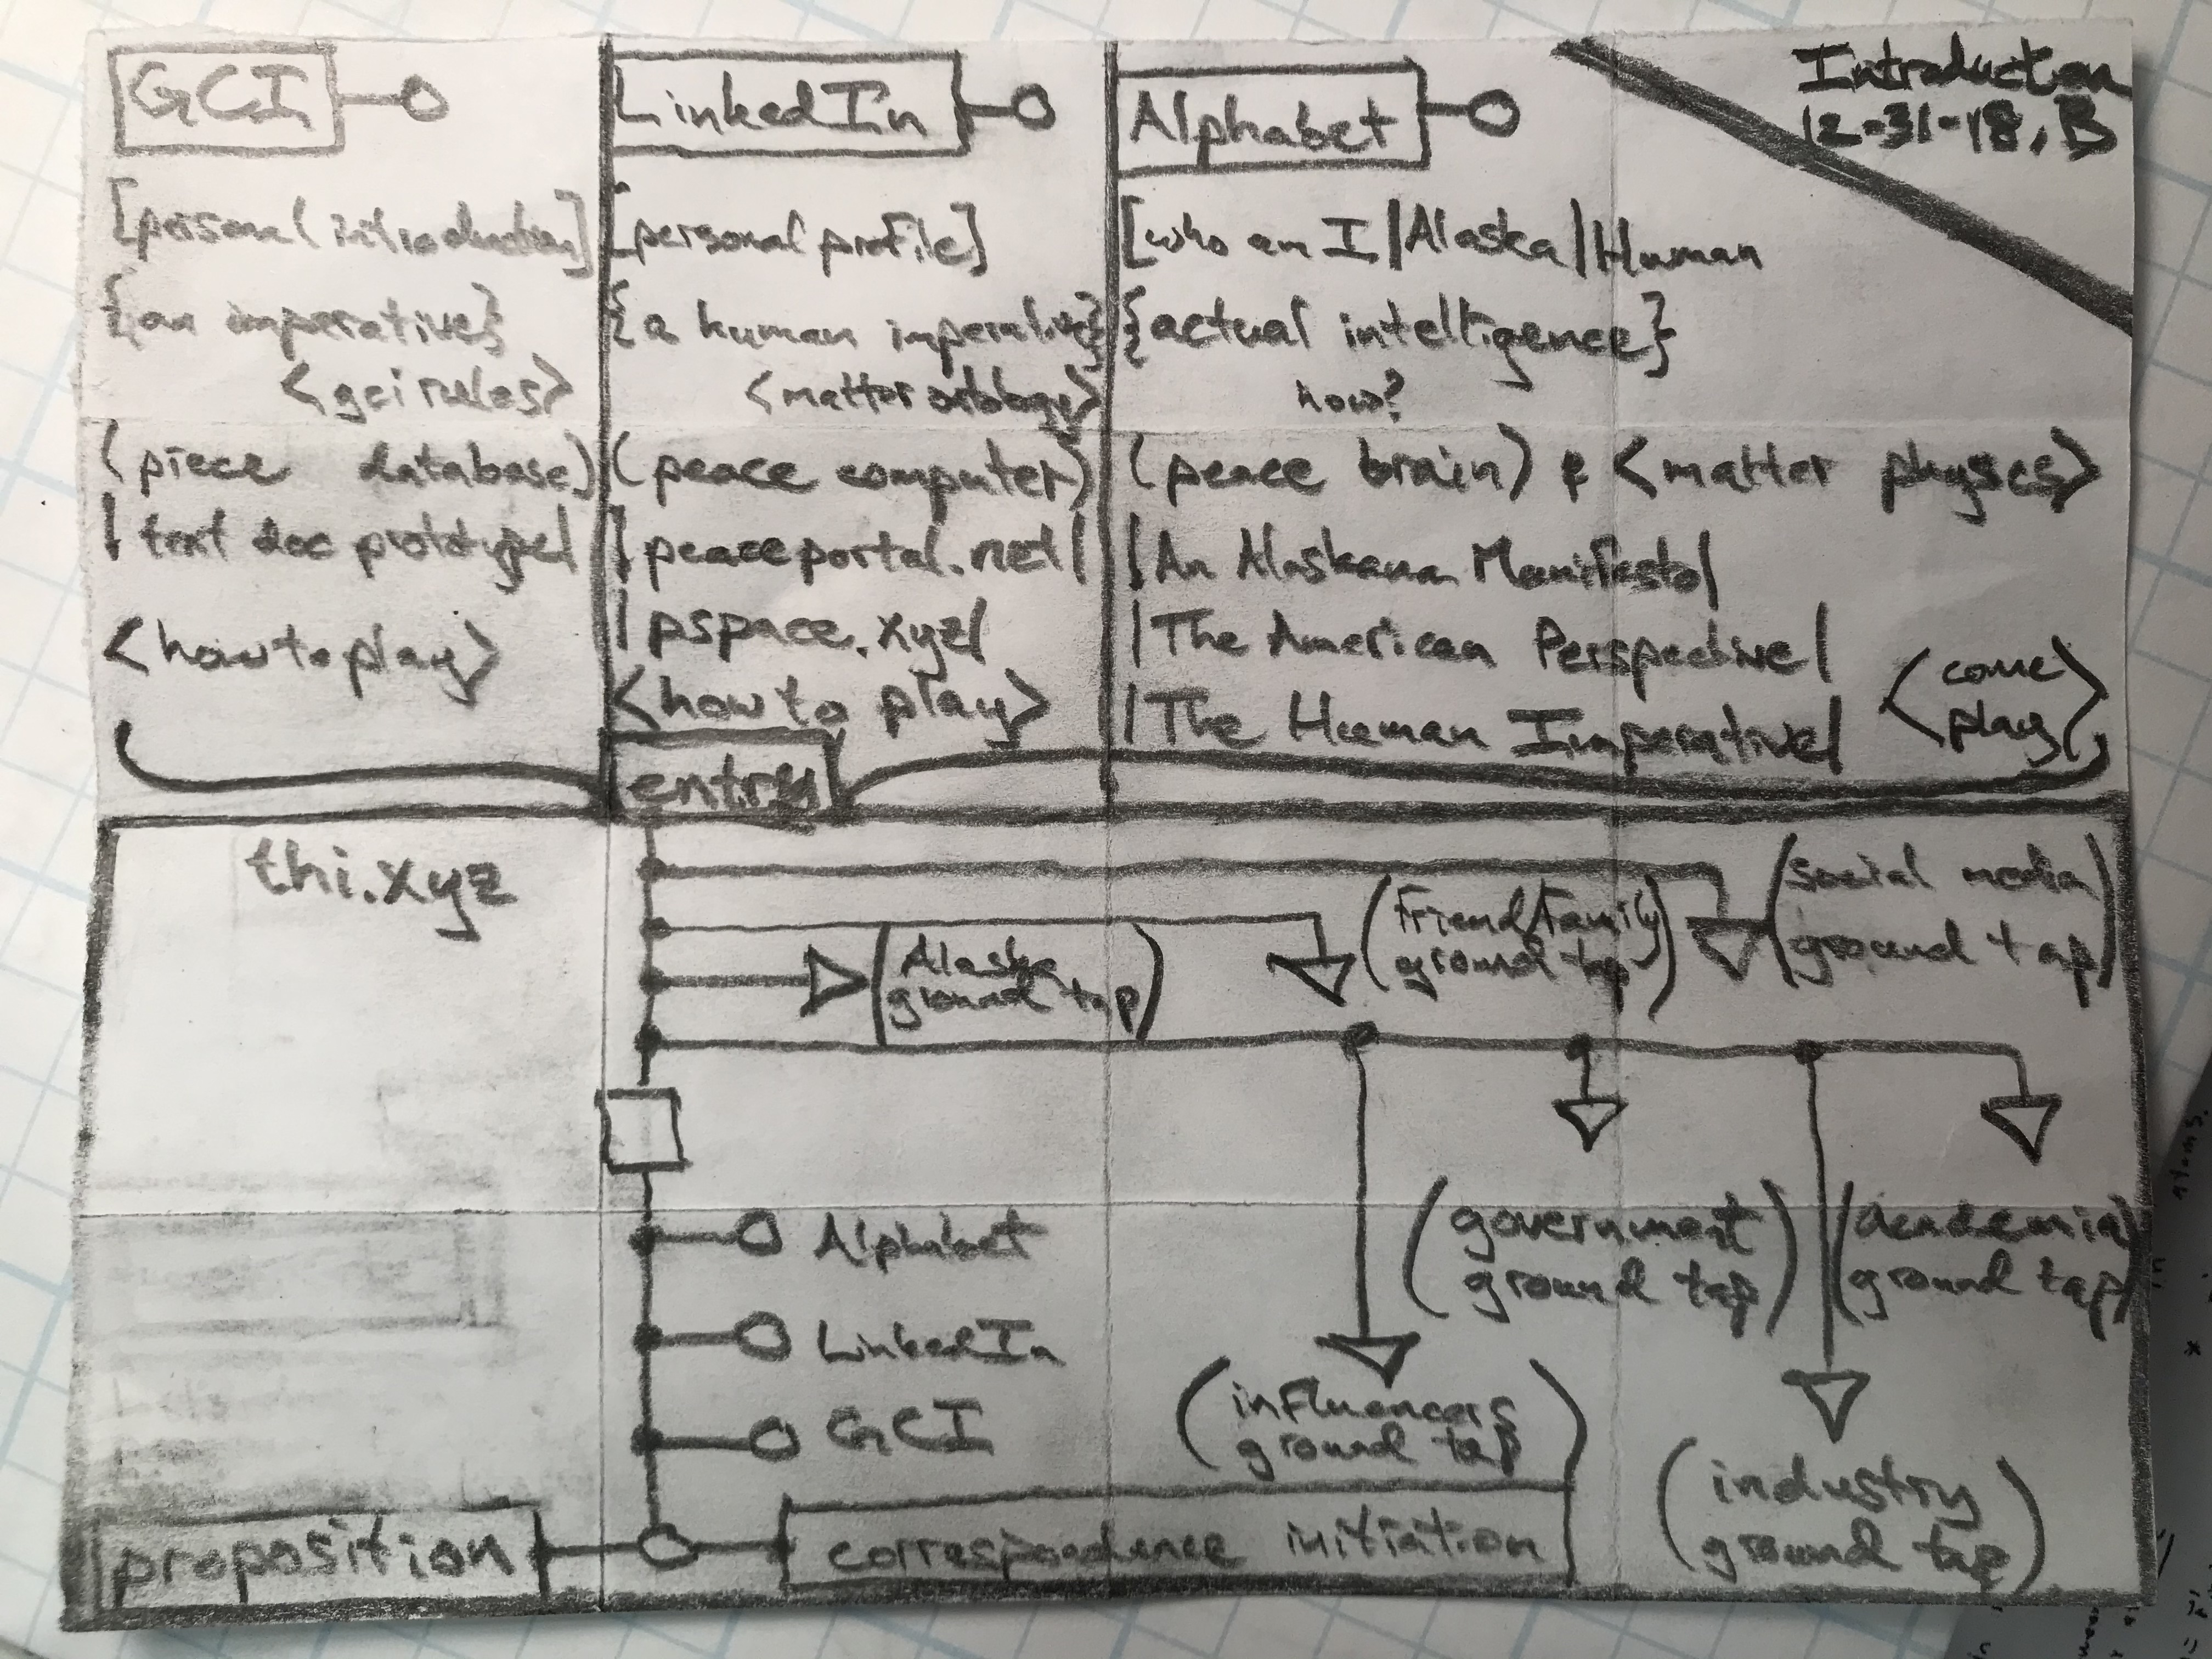 Introduction
12-31-18, B
GCI
[personal introduction]
{an imperative}
<gci rules>
(piece database)
|text doc prototype|
<how to play>
LinkedIn
[personal profile]
{a human imperative}
<matter ontology>
(peace computer)
|peaceportal.net|
|pspace.xyz|
<how to play>
Alphabet
[who am I|Alaska|Human
{actual intelligence}
now?
(peace brain) & <matter physics>
|An Alaskana Manifesto|
|The American Perspective|
|The Human Imperative|
<come
play>
entry
thi.xyz
(social media
ground tap)
(friend/family
ground tap)
(Alaska
ground tap)
(government
ground tap)
(academia
ground tap)
Alphabet
LinkedIn
GCI
(influencers
ground tap)
(industry
ground tap)
proposition
correspondence initiation